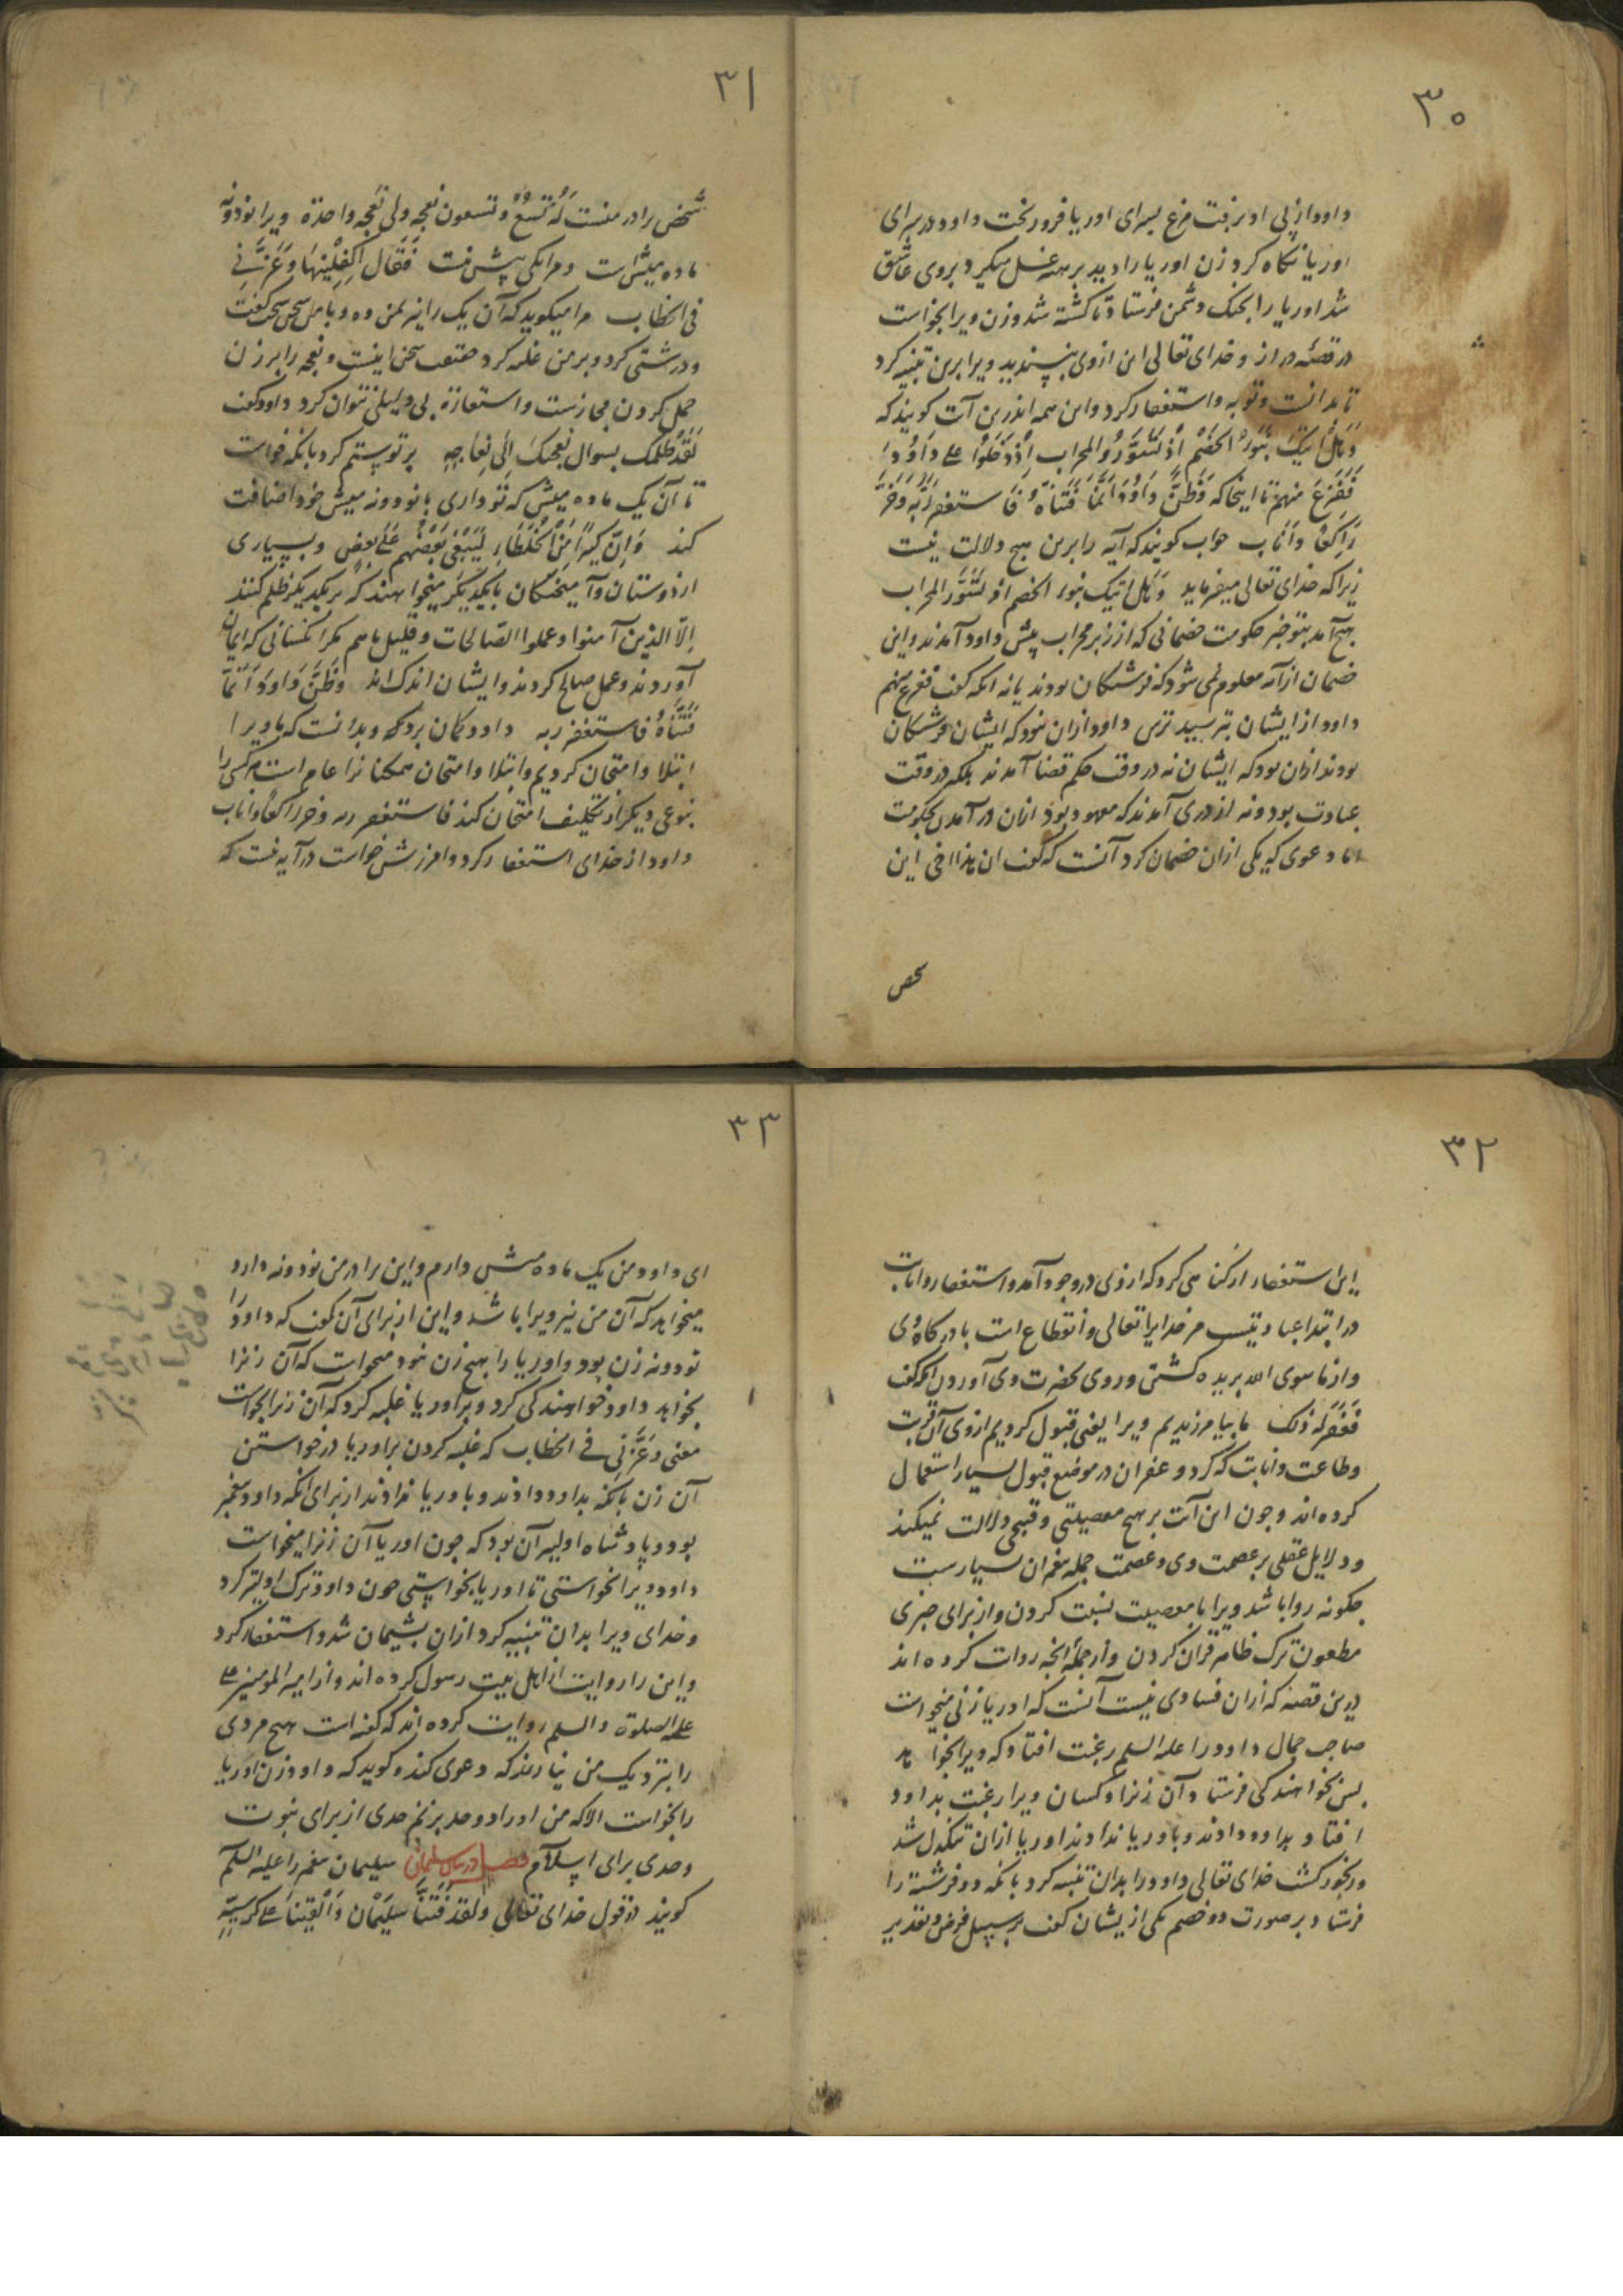 ۳۰
داود از پی او برفت مرغ بسرای اوریا فرود رفت داود در سرای
اوریا نگاه کرد زن اوریا را دید برهنه غسل میکرد بروی عاشق
شد اوریا را بجنک دشمن فرستاد تا کشته شد و زن ویرا بخواست
در قصه دراز و خدای تعالی این از وی نپسندید ویرا برین تنبیه کرد
تا بدانست و توبه و استغفار کرد و این همه اندرین آیت کویند که
وَهَل اَتیکَ نَبَؤُ الخَصْمِ اِذْ تَسَوَّرُوا المحراب اِذْ دَخَلُوا علی دَاوُدَ
فَفَزِعَ منهم تا اینجا که وَظَنَّ دَاوُدُ اَنَّمَا فَتَنَّاهُ فَاستغفر رَبَّهُ وَخَرَّ
رَاکِعًا وَاَنَاب جواب کویند که آیه را برین هیچ دلالت نیست
زیرا که خدای تعالی میفرماید وَهَل اتیک نبؤ الخصم اذ تَسَوَّرُ المحراب
هیچ آمد بتو خبر حکومت خصمانی که از زبر محراب پیش داود آمدند و این
خصمان از آیه معلوم نمی شود که فرشتکان بودند یا نه انکه کفت ففزع منهم
داود از ایشان بترسید ترس داود ازان نبود که ایشان فرشتکان
بودند ازان بود که ایشان نه در وقت حکم قضا آمدند بلکه در وقت
عبادت بود و نه از دری آمدند که معهود بود ازان در آمدن بحکومت
اما دعوی که یکی ازان خصمان کرد آنست که کفت ان هذا اخی این
شخص
۳۱
شخص برادر منست لَهُ تِسْعٌ وتسعون نعجه ولی نَعجه واحدة ویرا نود و نه
ماده میش است و مرا یکی بیش نیست فَقَال اَکْفِلْنِیهَا وَعَزَّنِی
فی الخطاب مرا میکوید که آن یک را نیز بمن ده و با من سخن سخت کفت
و درشتی کرد و بر من غلبه کرد حقیقت سخن اینست و نعجه را بر زن
حمل کردن مجازست و استعارة بی دلیلی نتوان کرد داود کفت
لَقَد ظَلَمَک بسوال نَعجتکَ اِلَی نِعَاجِهِ بر تو ستم کرد بانکه خواست
تا آن یک ماده میش که تو داری با نود و نه میش خود اضافت
کند وَاِنَّ کَثِیرًا مِنَ الْخُلَطَاءِ لَیَبْغِی بَعْضُهم عَلَی بعضٍ و بسیاری
از دوستان و آمیختکان بایکدیکر میخواهند که بر یکدیکر ظلم کنند
اِلّا الذین آمنوا وعملوا الصّالحات وقلیل ما هم مکرا نکسانی که ایمان
آوردند و عمل صالح کردند و ایشان اندک اند وَظَنَّ دَاوُدَ اَنَّمَا
فَتَنَّاهُ فاستغفر ربه داود کمان برد که و بدانست که ما ویرا
ابتلا و امتحان کردیم و ابتلا و امتحان همکنانرا عام است هر کسی را
بنوعی دیکر از تکلیف امتحان کند فاستغفر ربه وخرّ راکعًا واناب
داود از خدای استغفار کرد و امرزش خواست در آیه نیست که
۳۲
این استغفار از کناهی کرد که ازوی در وجود آمد و استغفار و انابت
در ابتدا عبادتیست مر خدایرا تعالی و انقطاع است با درکاه وی
و از ما سوی الله بریده کشتن و روی بحضرت وی آوردن انکه کفت
فَغَفَرَ لَهُ ذلک ما بیامرزیدیم ویرا یعنی قبول کردیم ازوی آن قربت
و طاعت و انابت که کرد و غفران در موضع قبول بسیار استعمال
کرده اند و چون این آیت بر هیچ معصیتی و قبیحی دلالت نمیکند
و دلایل عقلی بر عصمت وی و عصمت جمله پیغمبران بسیارست
چکونه روا باشد ویرا با معصیت نسبت کردن و از برای خبری
مطعون ترک ظاهر قرآن کردن و از جملهٔ انچه روایت کرده اند
درین قصه که ازان فسادی نیست آنست که اوریا زنی میخواست
صاحب جمال داود را علیه السلم رغبت افتاد که ویرا بخواهد
پس بخواهندکی فرستاد و آن زنرا و کسان ویرا رغبت بداود
افتاد و بداود دادند و باوریا ندادند اوریا ازان تنکدل شد
و رنجور کشت خدای تعالی داود را بدان تنبیه کرد بانکه دو فرشته را
فرستاد بر صورت دو خصم یکی از یشان کفت بر سبیل فرض و تقدیر
۳۳
ای داود من یک ماده میش دارم و این برادر من نود و نه دارد
میخواهد که آن من نیز ویرا باشد و این از برای آن کفت که داود را
نود و نه زن بود و اوریا را هیچ زن نبود میخواست که آن زنرا
بخواهد داود خواهندکی کرد و بر اوریا غلبه کرد که آن زنرا بخواست
معنی وَعَزَّنِی فی الخطاب که غلبه کردن بر اوریا در خواستن
آن زن بانکه بداود دادند و باوریا ندادند از برای انکه داود پیغمبر
بود و پادشاه اولیتر آن بود که چون اوریا آن زنرا میخواست
داود ویرا نخواستی تا اوریا بخواستی چون داود ترک اولیتر کرد
و خدای ویرا بدان تنبیه کرد ازان پشیمان شد و استغفار کرد
و این را روایت از اهل بیت رسول کرده اند و از امیر المومنین علی
علیه الصلوة والسلم روایت کرده اند که کفته است هیچ مردی
را بنزدیک من نیارند که دعوی کند و کوید که داود زن اوریا
را بخواست الا که من او را دو حد بزنم حدی از برای نبوت
و حدی برای اسلام فصل در بیان سلیمان سلیمان پیغمبر را علیه السلم
کویند در قول خدای تعالی ولقد فَتَنَّا سُلَیْمَان وَاَلْقَیْنَا عَلی کُرْسِیِّهِ